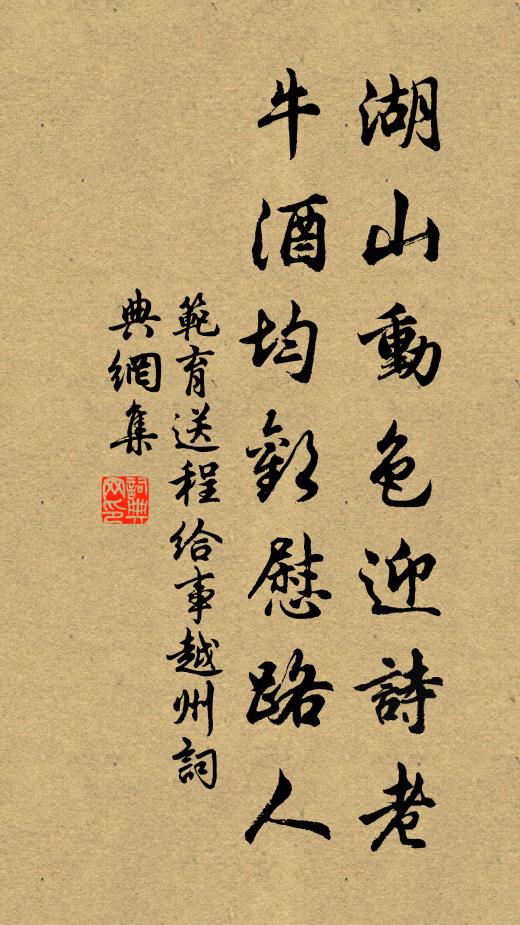 湖山動色迎詩老
牛酒均歡慰路人
範育送程給事越州詞
典網集
詞典
网印